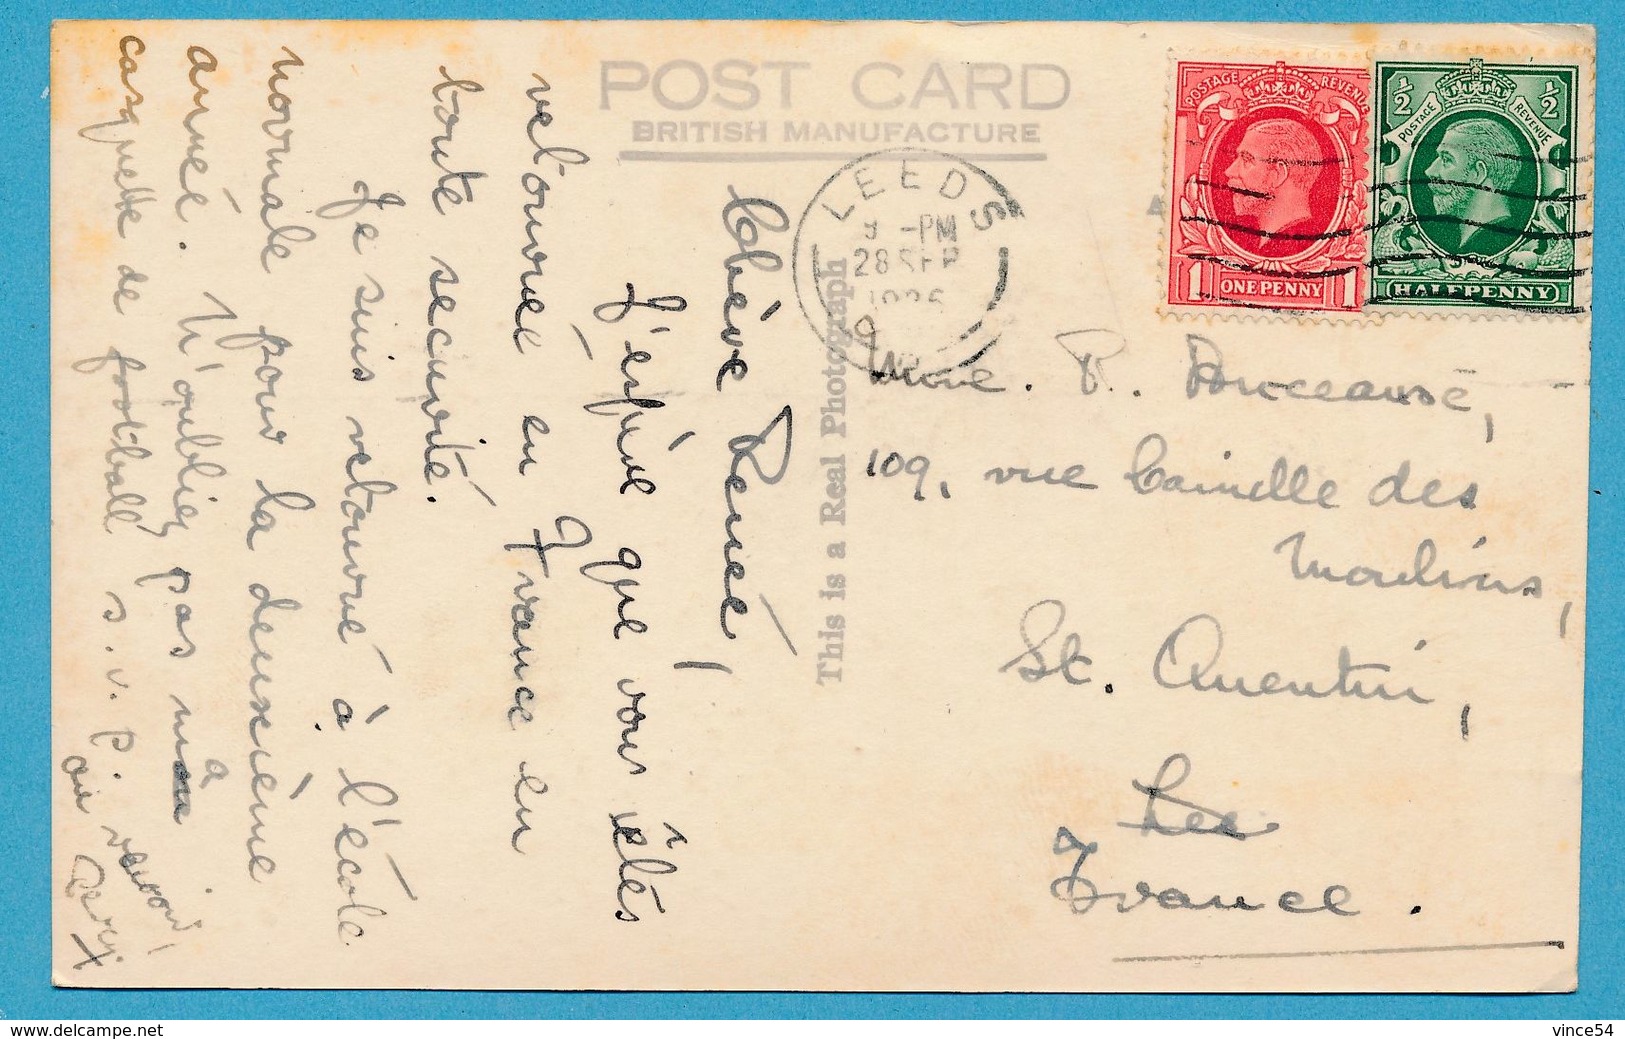 POST CARD
BRITISH MANUFACTURE
This is a Real Photograph
POSTAGE REVENUE
1 ONE PENNY 1
½ ½
POSTAGE REVENUE
HALFPENNY
LEEDS
-PM
28 SEP
Chère Renée,
J'espère que vous êtes
retournée en France en
toute securité.
Je suis retourné à l'école
normale pour la deuxième
année. N'oubliez pas ma
casquette de foot-ball s.v.p.
au revoir,
Mme. R.
109, rue Camille des
Moulins,
St. Quentin,
France.
delcampe.net
vince54